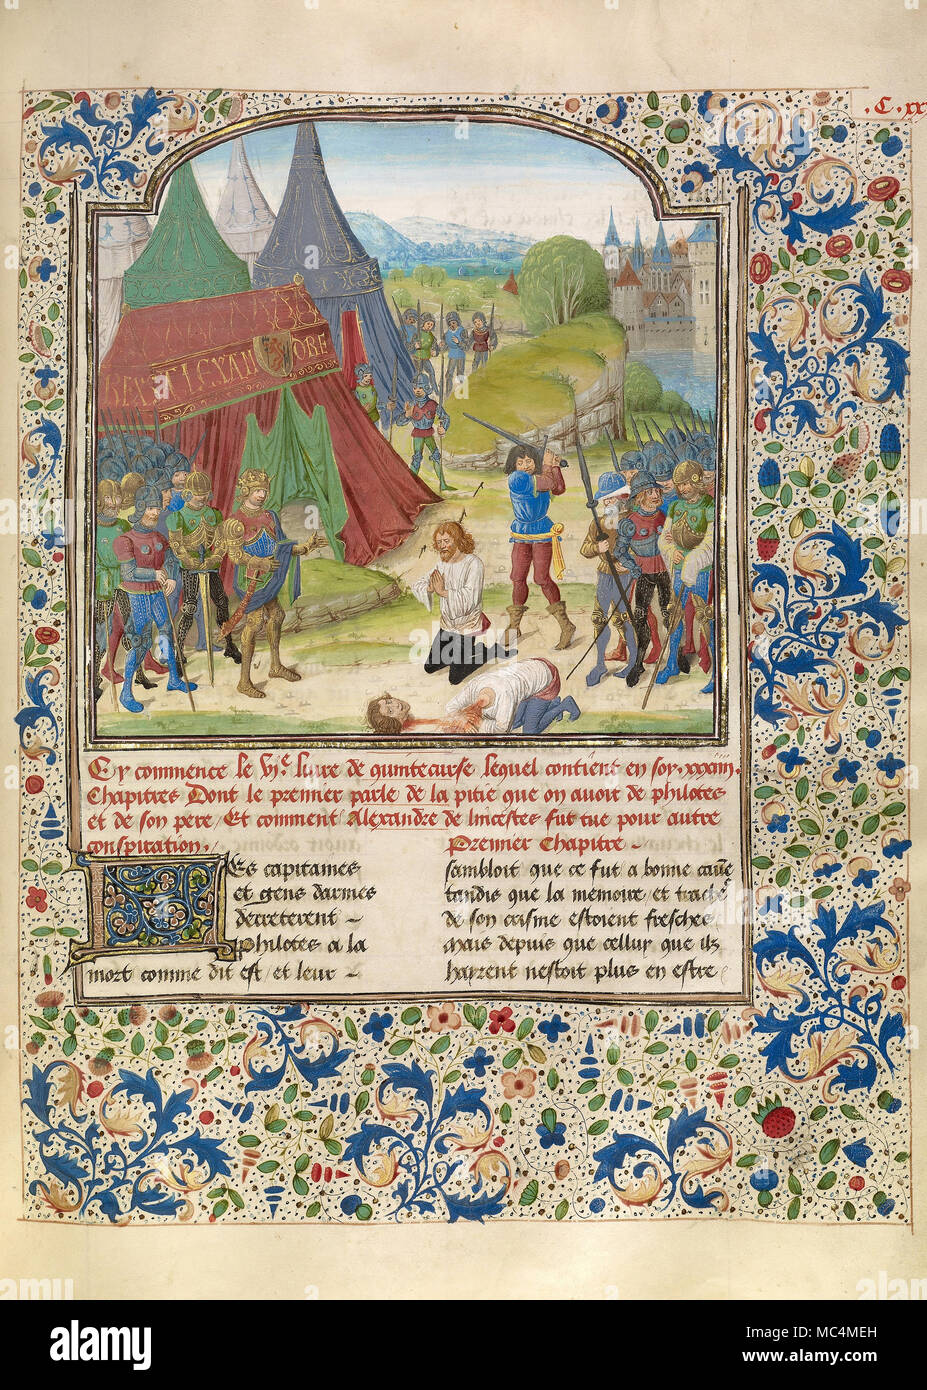 .C. xx
REX ALEXAN ORE
Cy commence le vj.e liure de quintecurse lequel contient en soy .xxxiiij.
Chapitres Dont le premier parle de la pitie que on auoit de philotes
et de son pere / Et comment Alexandre de lincestes fut tue pour autre
conspiration.
Premier Chapitre
Les capitaines
et gens darmes
decreterent
Philotes a la
mort comme dit est / et leur
sambloit que ce fut a bonne cause
tandis que la memoire et trache
de son crisme estoient fresches
Mais depuis que cellui que ilz
hayrent nestoit plus en estre
a
alamy
alamy stock photo
MC4MEH
www.alamy.com